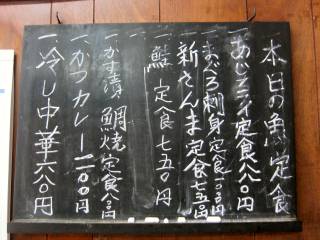 本日の魚定食
一 あじフライ定食 八八〇円
一 まぐろ刺身定食 八八〇円
一 新さんま定食 七五〇円
一 鮭定食 七五〇円
一 かす漬鯛焼定食 八八〇円
一 かつカレー 一一〇〇円
一 冷し中華 六八〇円